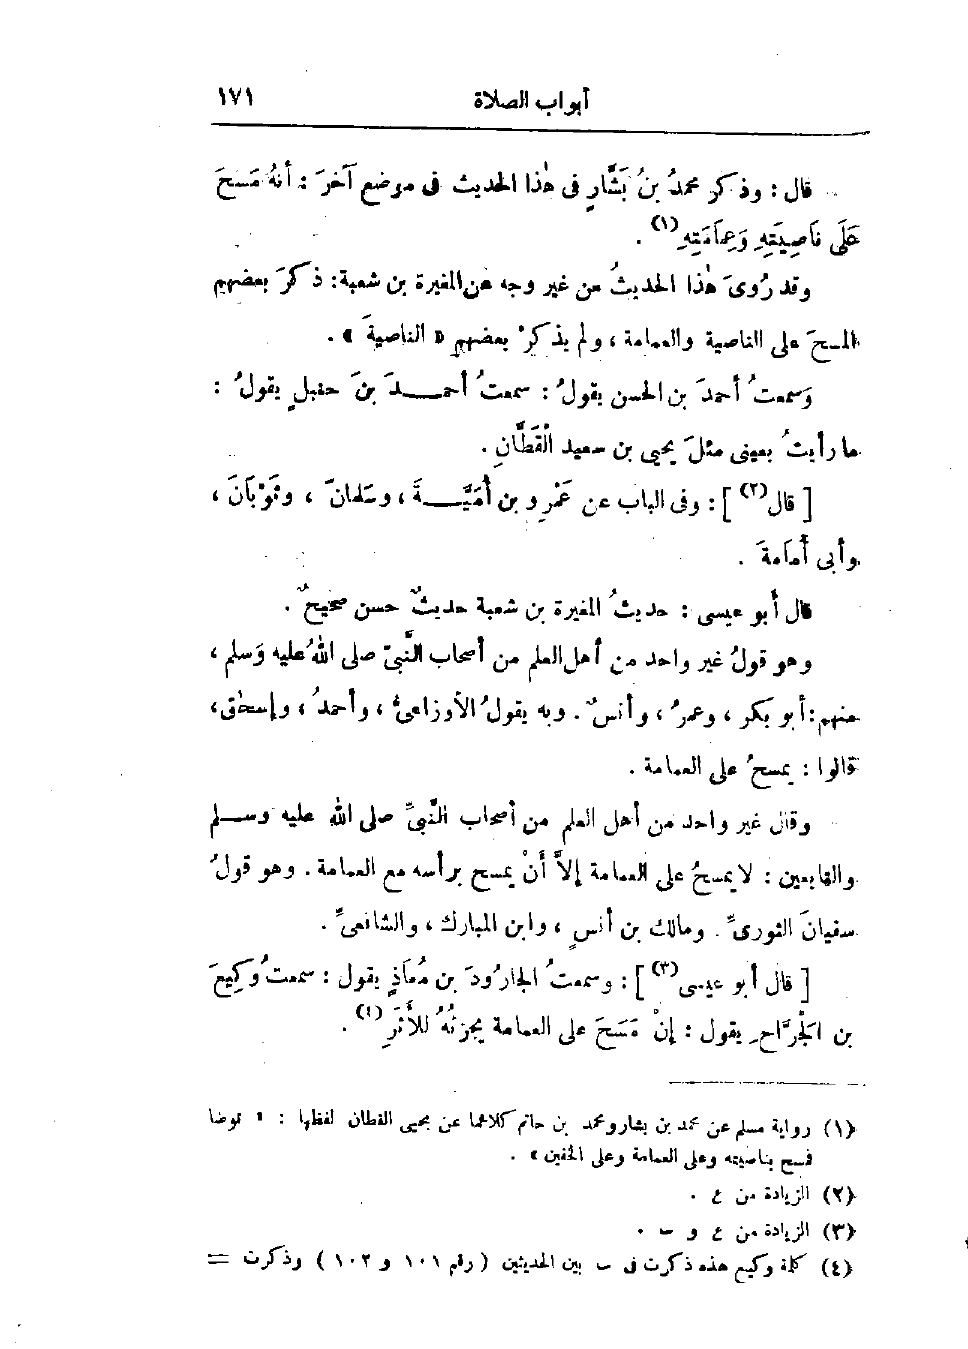 أبواب الصلاة ١٧١
قال : وذكر محمدُ بنُ بَشَّارٍ فى هٰذا الحديث فى موضع آخرَ : أنهُ مَسَحَ
عَلَى نَاصِيَتِهِ وَعِمَامَتِهِ (١) .
وقد رُوِىَ هٰذا الحديثُ من غير وجه عن المغيرة بن شعبة: ذكرَ بعضهم
المسحَ على الناصية والعمامة ، ولم يذكرْ بعضهم « الناصيةَ » .
وَسمعتُ أحمدَ بن الحسن يقولُ : سمعتُ أحمـــدَ بنَ حنبلٍ يقولُ :
ما رأيتُ بعينى مثلَ يحيى بن سعيد الْقَطَّانِ .
[ قال (٢) ] : وفى الباب عن عَمْرِو بن أُمَيَّـــةَ ، وسَلمانَ ، وثَوْبَانَ ،
وأبى أُمَامةَ .
قال أبو عيسى : حديثُ المغيرة بن شعبة حديثٌ حسن صحيحٌ .
وهو قولُ غير واحد من أهل العلم من أصحاب النَّبىّ صلى اللهُ عليه وَسلم ،
منهم : أبو بكر ، وعمرُ ، وأنسٌ . وبه يقولُ الأوزاعىُّ ، وأحمدُ ، وإسحٰق ،
قالوا : يمسحُ على العمامة .
وقال غير واحد من أهل العلم من أصحاب النَّبىِّ صلى الله عليه وســلم
والتابعين : لا يمسحُ على العمامة إلاَّ أَنْ يمسح برأسه مع العمامة . وهو قولُ
سفيانَ الثورىِّ . ومالك بن أنسٍ ، وابن المبارك ، والشافعىِّ .
[ قال أبو عيسى (٣) ] : وسمعتُ الجارُودَ بن مُعاذٍ يقول : سمعتُ وَكِيعَ
بن الْجَرَّاحِ يقول : إنْ مَسَحَ على العمامة يجزئُهُ للأَثَرِ (٤) .
(١) رواية مسلم عن محمد بن بشار ومحمد بن حاتم كلاهما عن يحيى القطان لفظها : « توضأ
فمسح بناصيته وعلى العمامة وعلى الخفين » .
(٢) الزيادة من ع .
(٣) الزيادة من ع و ب .
(٤) كلمة وكيع هذه ذكرت فى ب بين الحديثين ( رقم ١٠١ و ١٠٢ ) وذكرت =